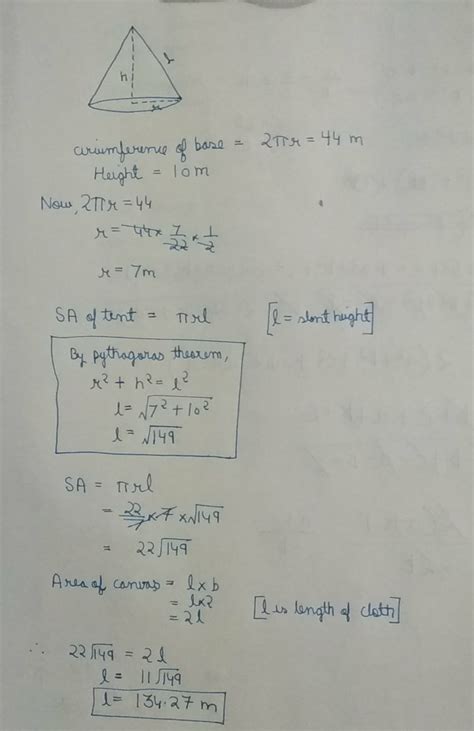 l
h
r
circumference of base = 2πr = 44 m
Height = 10m
Now, 2πr = 44
r = 44 × 7/22 × 1/2
r = 7m
SA of tent = πrl [l = slant height]
By pythagoras theorem,
r² + h² = l²
l = √7² + 10²
l = √149
SA = πrl
= 22/7 × 7 × √149
= 22√149
Area of canvas = l × b
= l×2
= 2l [l is length of cloth]
∴ 22√149 = 2l
l = 11√149
l = 134.27 m